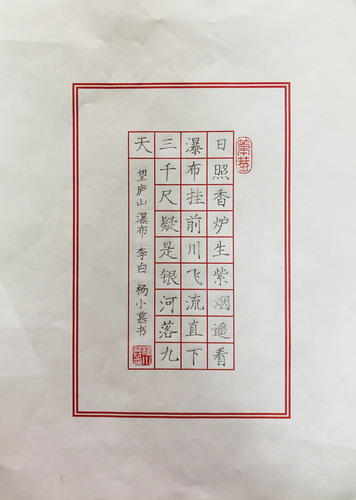 日照香炉生紫烟遥看
瀑布挂前川飞流直下
三千尺疑是银河落九
天
望庐山瀑布 李白 杨小慕书